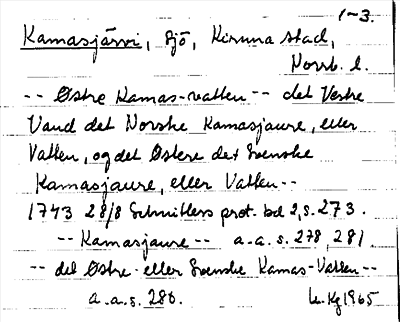 1-3.
Kamasjärvi, sjö, Kiruna stad,
Norrb. l.
-- Østre Kamas-vatten -- det Vestre
Vand det Norske Kamasjaure, eller
Vatten, og det Østere det Svenske
Kamasjaure, eller Vatten --
1743 28/8 Schnitlers prot. bd 2, s. 273.
-- Kamasjaure -- a.a.s. 278, 281.
-- det Østre eller Svenske Kamas-Vatten --
a.a.s. 280. Kg 1965